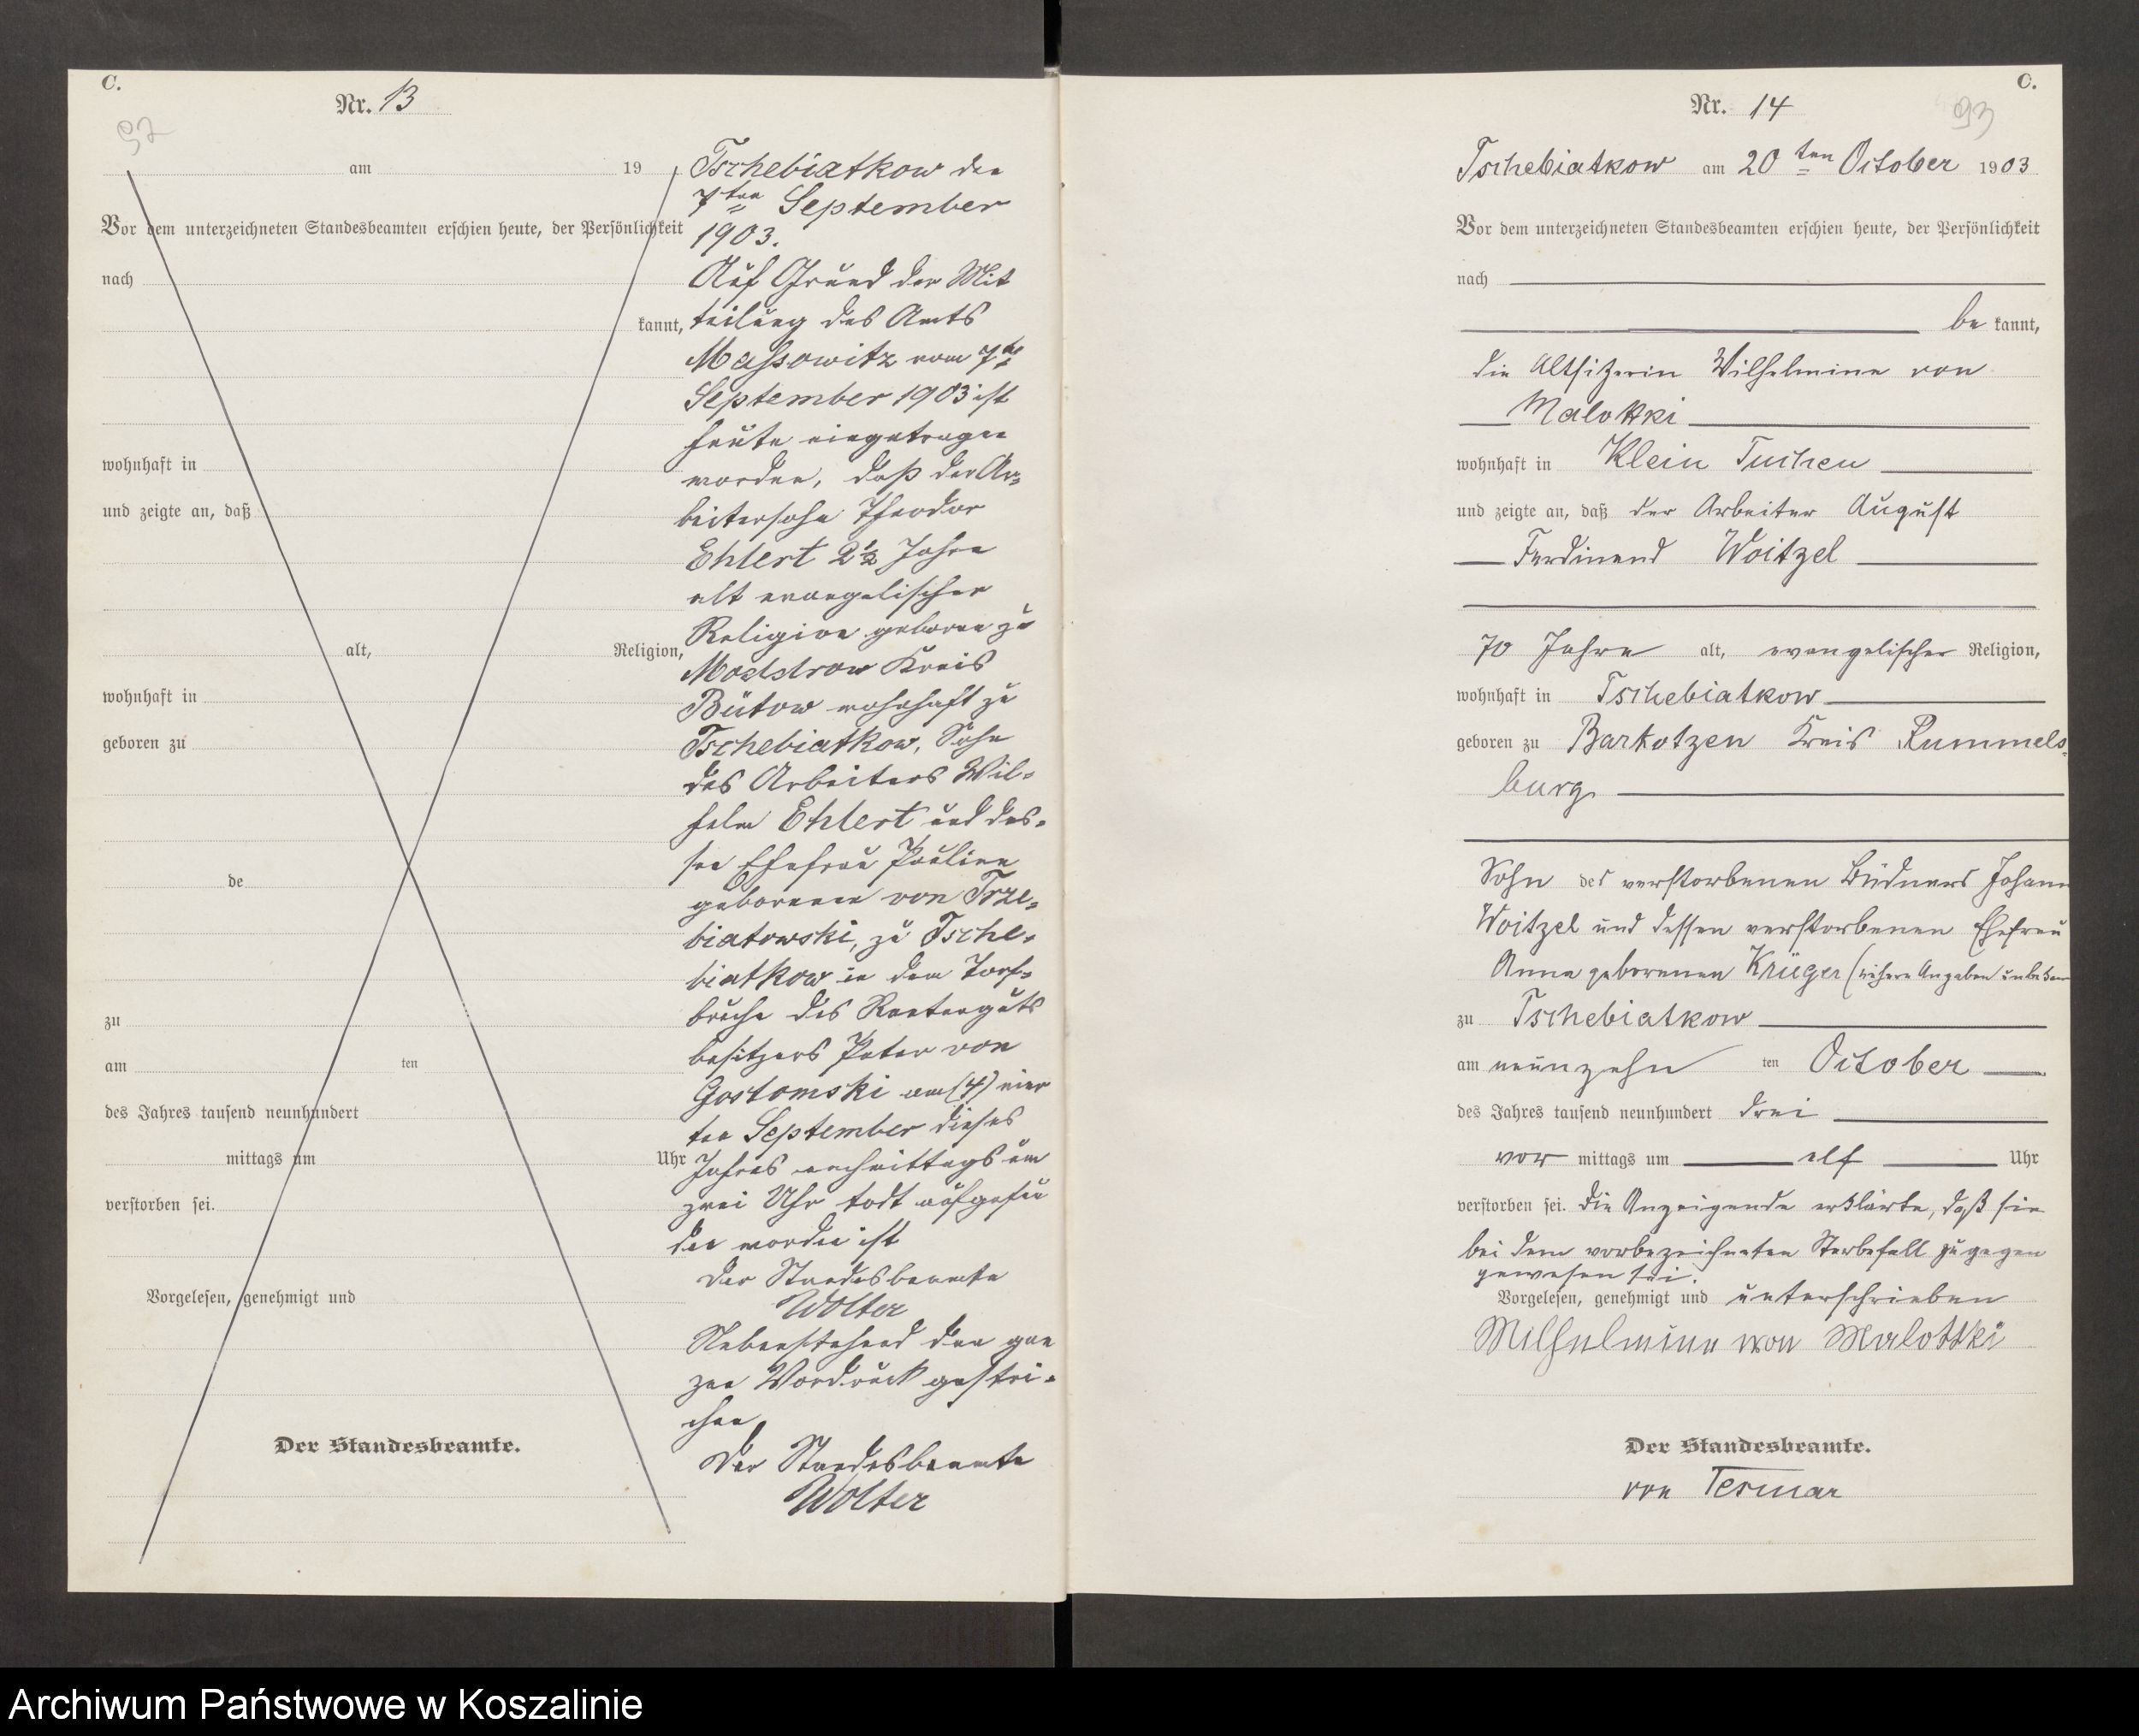 C.
Nr. 13
92
am 19
Vor dem unterzeichneten Standesbeamten erschien heute, der Persönlichkeit
nach
kannt,
wohnhaft in
und zeigte an, daß
alt, Religion,
wohnhaft in
geboren zu
de
zu
am ten
des Jahres tausend neunhundert
mittags um Uhr
verstorben sei.
Vorgelesen, genehmigt und
Der Standesbeamte.
Tschebiatkow den
7ten September
1903.
Auf Grund der Mit
teilung des Amts
Massowitz vom 7ten
September 1903 ist
heute eingetragen
worden, daß der Ar-
beitersohn Theodor
Ehlert 2½ Jahre
alt evangelischer
Religion geboren zu
Kreis
Bütow wohnhaft zu
Tschebiatkow, Sohn
des Arbeiters Wil-
helm Ehlert und des-
sen Ehefrau Pauline
geborenen von Trze-
biatowski, zu Tsche-
biatkow in dem Torf-
bruche des Rentenguts
besitzers Peter von
Gostomski am (4) vier
ten September dieses
Jahres nachmittags um
zwei Uhr todt aufgefun
den worden ist
Der Standesbeamte
Wolter
Nebenstehend den gan
zen Vordruck gestri-
chen
Der Standesbeamte
Wolter
C.
Nr. 14
93
Tschebiatkow am 20ten October 1903
Vor dem unterzeichneten Standesbeamten erschien heute, der Persönlichkeit
nach
be kannt,
die Altsitzerin Wilhelmine von
Malottki
wohnhaft in Klein Tuchen
und zeigte an, daß der Arbeiter August
Ferdinand Woitzel
70 Jahre alt, evangelischer Religion,
wohnhaft in Tschebiatkow
geboren zu Barkotzen Kreis Rummels-
burg
Sohn des verstorbenen Büdners Johann
Woitzel und dessen verstorbenen Ehefrau
Anna geborenen Krüger (nähere Angaben unbekan
zu Tschebiatkow
am neunzehn ten October
des Jahres tausend neunhundert drei
vor mittags um elf Uhr
verstorben sei. Die Anzeigende erklärte, daß sie
bei dem vorbezeichneten Sterbefall zugegen
gewesen sei.
Vorgelesen, genehmigt und unterschrieben
Wilhelmine von Malottki
Der Standesbeamte.
von
Archiwum Państwowe w Koszalinie